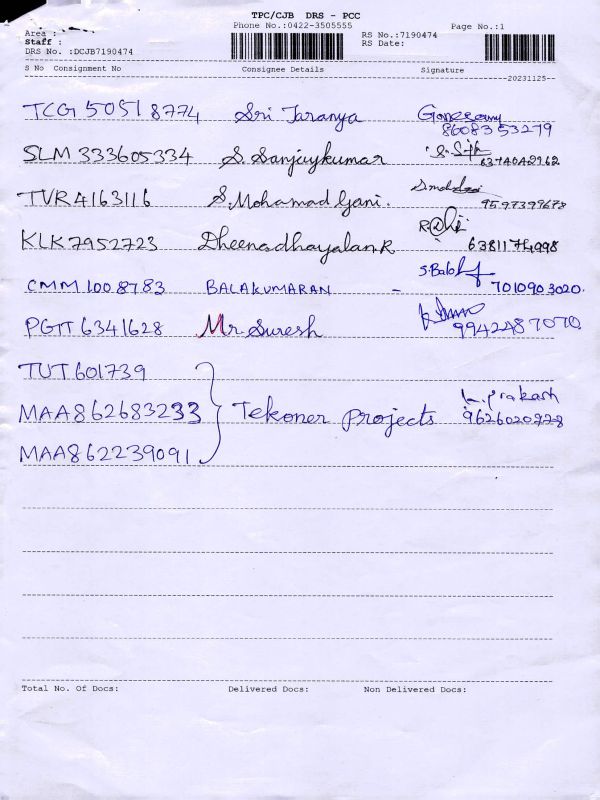 TPC/CJB DRS - PCC
Area : Phone No.:0422-3505555 Page No.:1
Staff : RS No.:7190474
DRS No. :DCJB7190474 RS Date:
S No Consignment No Consignee Details Signature
20231125
TCG 50518774 Sri Taranya Ganesamy
8608353279
SLM 333605334 S. Sanjaykumar
TVR 4163116 S. Mohamad Gani. 9597399678
KLK 7952723 Dheenadhayalan.R
CMM 1008783 BALAKUMARAN - S.Bala
7010903020.
PGTT 6341628 Mr Suresh
9942487070
TUT 601739
MAA 862683233 Tekoner Projects K. Prakash
9626020928
MAA 862239091
Total No. Of Docs: Delivered Docs: Non Delivered Docs: